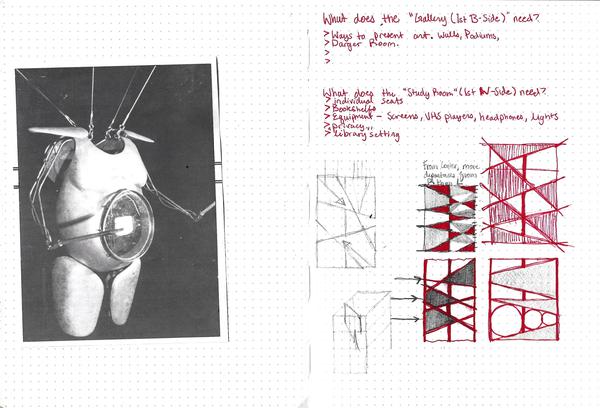 What does the "Gallery (1st B-Side)" need?
> Ways to present art. Walls, Podiums,
> Danger Room.
>
>
What does the "Study Room" (1st N-Side) need?
> individual seats
> Bookshelfs
> Equipment - Screens, VHS players, headphones, lights
> privacy...
> library setting
From center, more
departures from